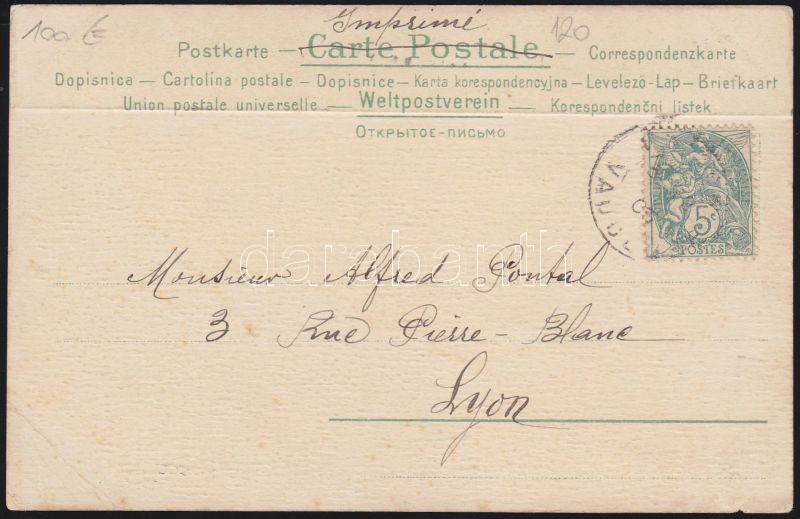 100 € 120
Imprimé
Postkarte — Carte Postale — Correspondenzkarte
Dopisnica — Cartolina postale — Dopisnice — Karta korespondencyjna — Levelezö-Lap — Briefkaart
Union postale universelle — Weltpostverein — Korespondenční listek.
ОТКРЫТОЕ-ПИСЬМО
5c
POSTES
darabanth
Monsieur Alfred Pontal
3 Rue Pierre-Blanc
Lyon